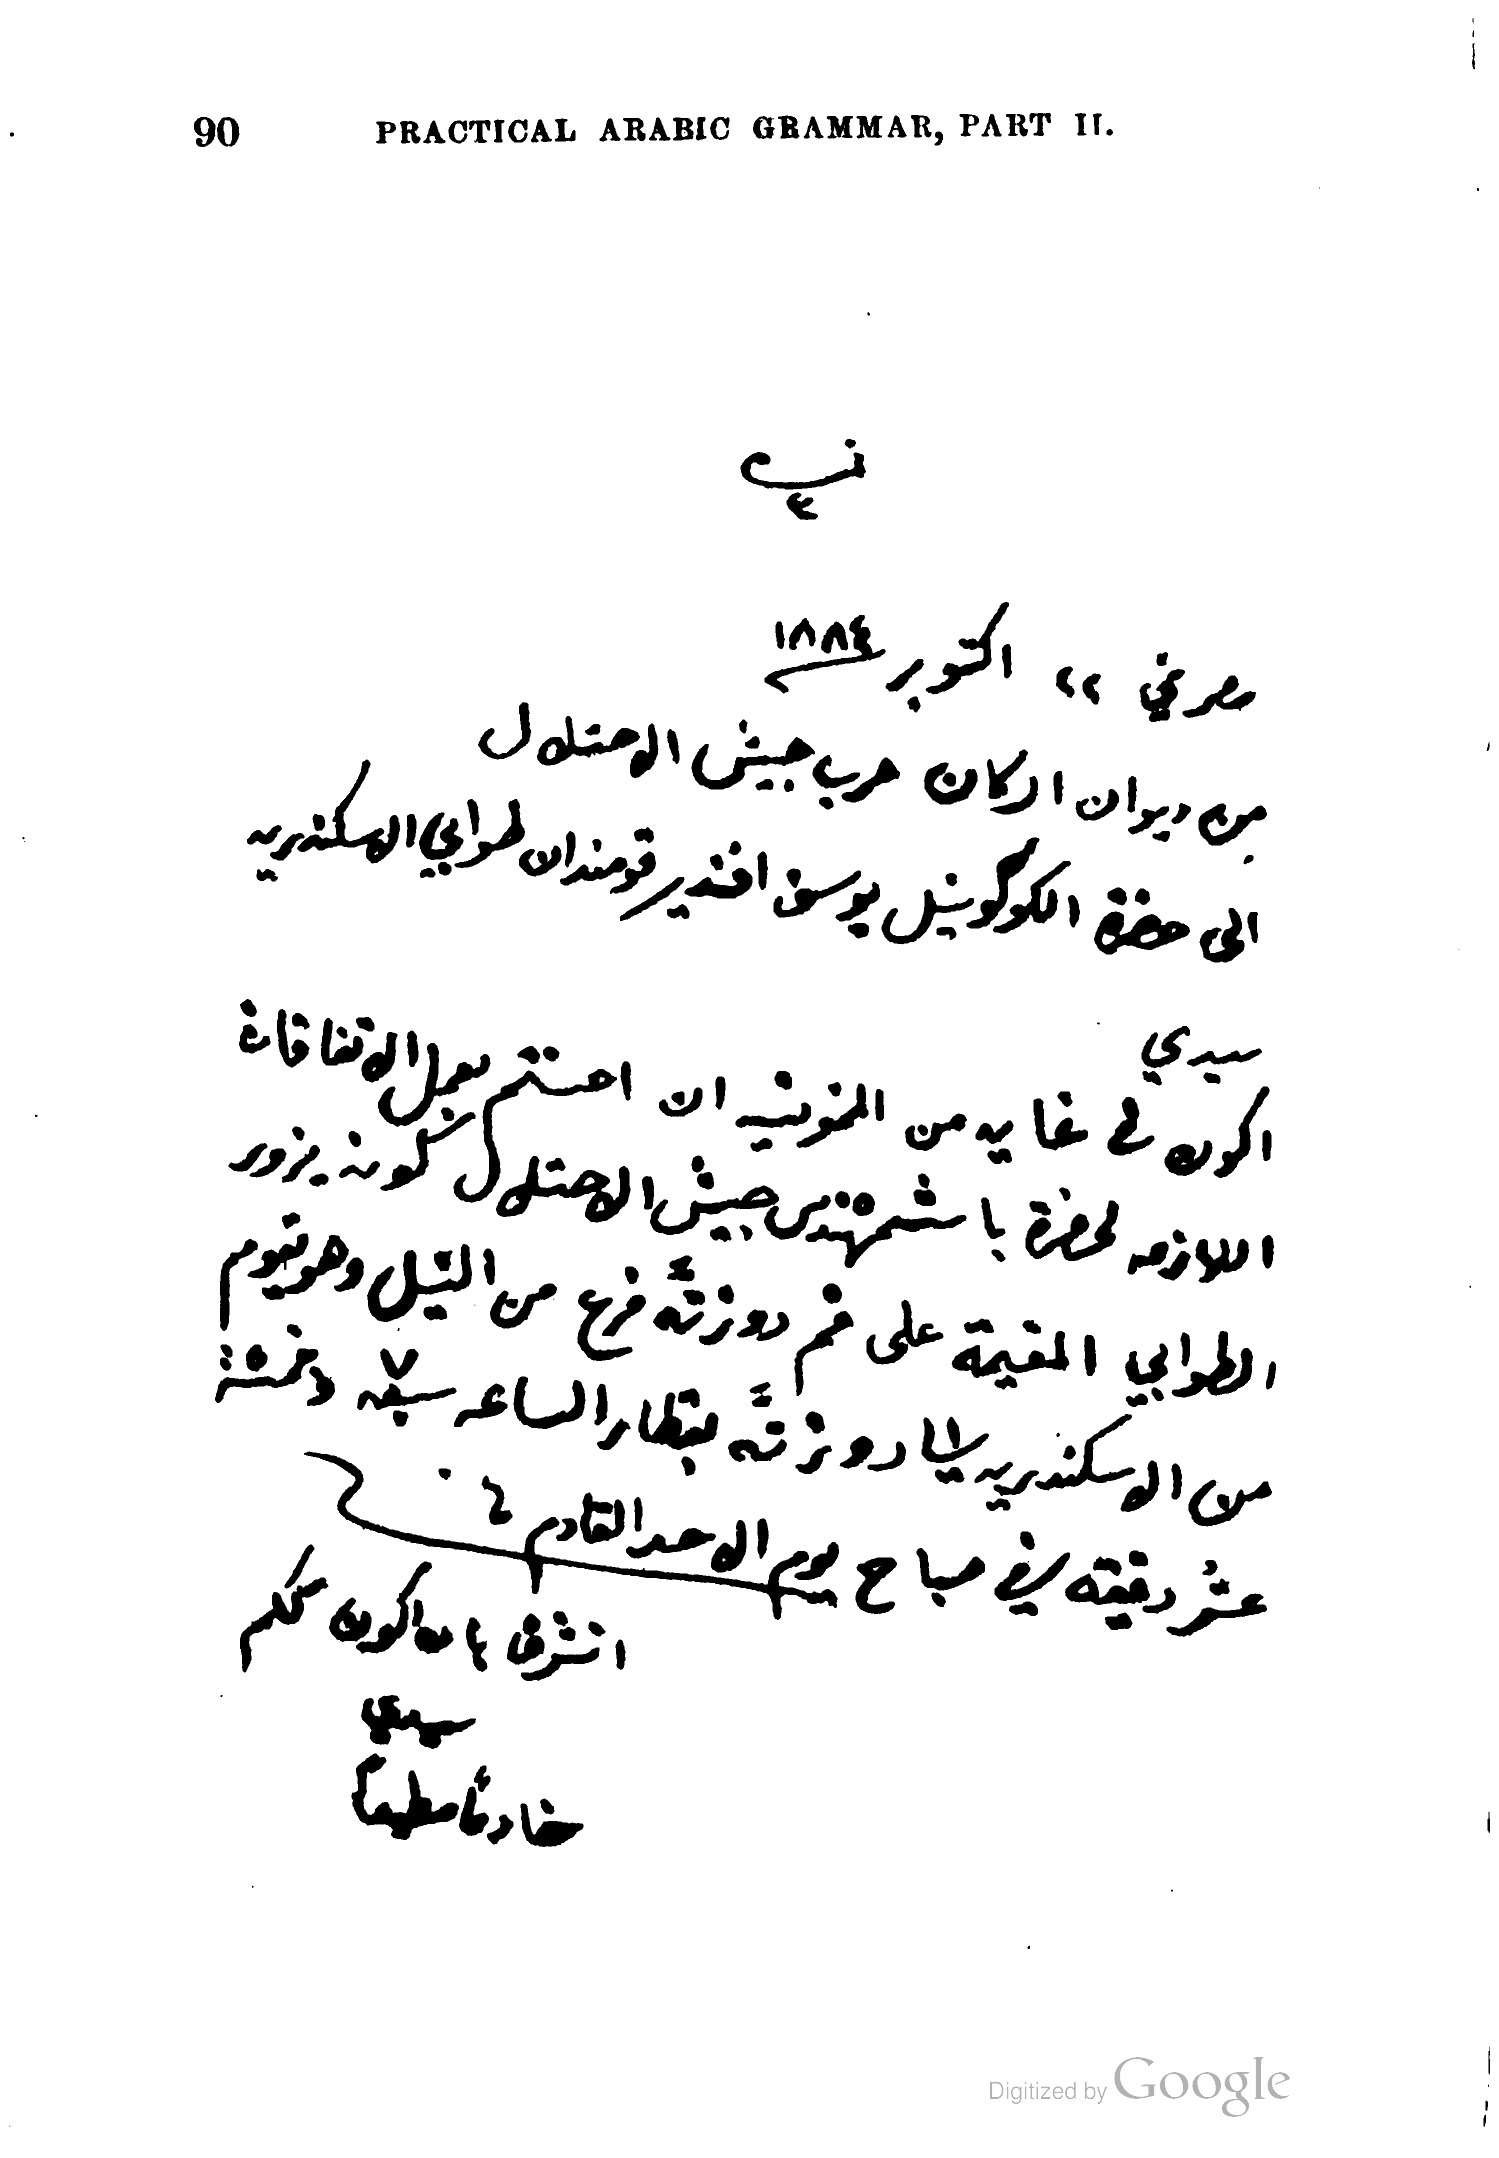 90 PRACTICAL ARABIC GRAMMAR, PART II.
مصر في ٢٢ اكتوبر ١٨٨٤
من ديوان اركان حرب جيش الاحتلال
الى حضرة الكولونيل يوسف افندي قومندان طوابي الاسكندريه
سيدي
اكون في غايه من الممنونيه ان احسنتم بعمل الاتفاقات
اللازمه لحضرة باشمهندس جيش الاحتلال لكونه يزور
الطوابي المقيمة على فم روزتّه فرع من النيل وهو يقوم
من الاسكندريه الى روزتّه بقطار الساعه سبعه ٧ وخمسة
عشر دقيقه في صباح يوم الاحد القادم
اتشرف بان اكون لكم
سيدي
خادمًا مطيعًا
Digitized by Google